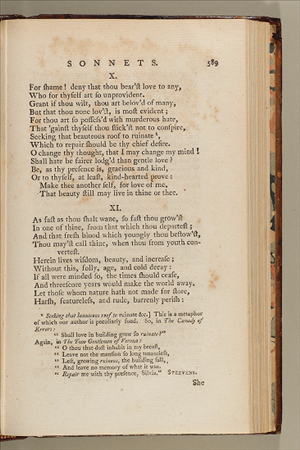 SONNETS. 589
X.
For ſhame! deny that thou bear'ſt love to any,
Who for thyſelf art ſo unprovident.
Grant if thou wilt, thou art belov'd of many,
But that thou none lov'ſt, is moſt evident;
For thou art ſo poſſeſs'd with murderous hate,
That 'gainſt thyſelf thou ſtick'ſt not to conſpire,
Seeking that beauteous roof to ruinate *,
Which to repair ſhould be thy chief deſire.
O change thy thought, that I may change my mind!
Shall hate be fairer lodg'd than gentle love?
Be, as thy preſence is, gracious and kind,
Or to thyſelf, at leaſt, kind-hearted prove:
Make thee another ſelf, for love of me,
That beauty ſtill may live in thine or thee.
XI.
As faſt as thou ſhalt wane, ſo faſt thou grow'ſt
In one of thine, from that which thou departeſt;
And that freſh blood which youngly thou beſtow'ſt,
Thou may'ſt call thine, when thou from youth con-
verteſt.
Herein lives wiſdom, beauty, and increaſe;
Without this, folly, age, and cold decay:
If all were minded ſo, the times ſhould ceaſe,
And threeſcore years would make the world away.
Let thoſe whom nature hath not made for ſtore,
Harſh, featureleſs, and rude, barrenly periſh:
* Seeking that beauteous roof to ruinate &c.] This is a metaphor
of which our author is peculiarly fond. So, in The Comedy of
Errors:
" Shall love in building grow ſo ruinate?"
Again, in The Two Gentlemen of Verona:
" O thou that doſt inhabit in my breaſt,
" Leave not the manſion ſo long tenantleſs,
" Leſt, growing ruinous, the building fall,
" And leave no memory of what it was.
" Repair me with thy preſence, Silvia." STEEVENS.
She